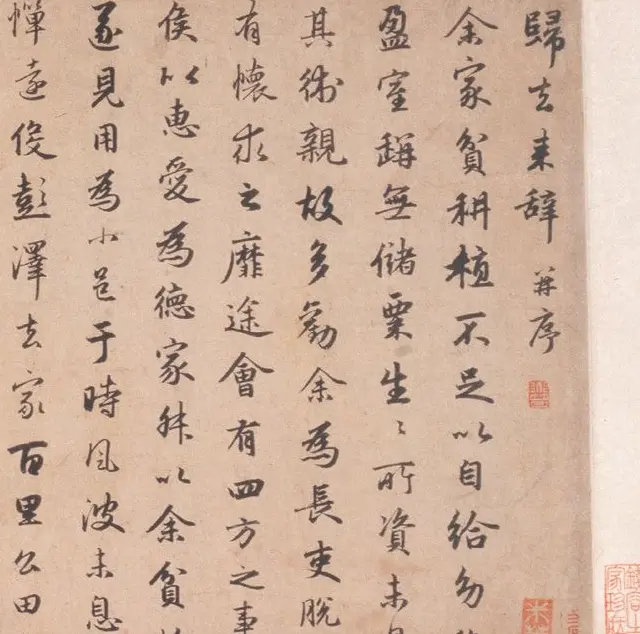 歸去来辞 并序
余家貧耕植不足以自給幼
盈室缾無儲粟生〻所資未
其術親故多勸余為長吏脫
有懷求之靡途會有四方之事
侯以惠愛為德家叔以余貧
遂見用為小邑于時風波未息
憚遠役彭澤去家百里公田